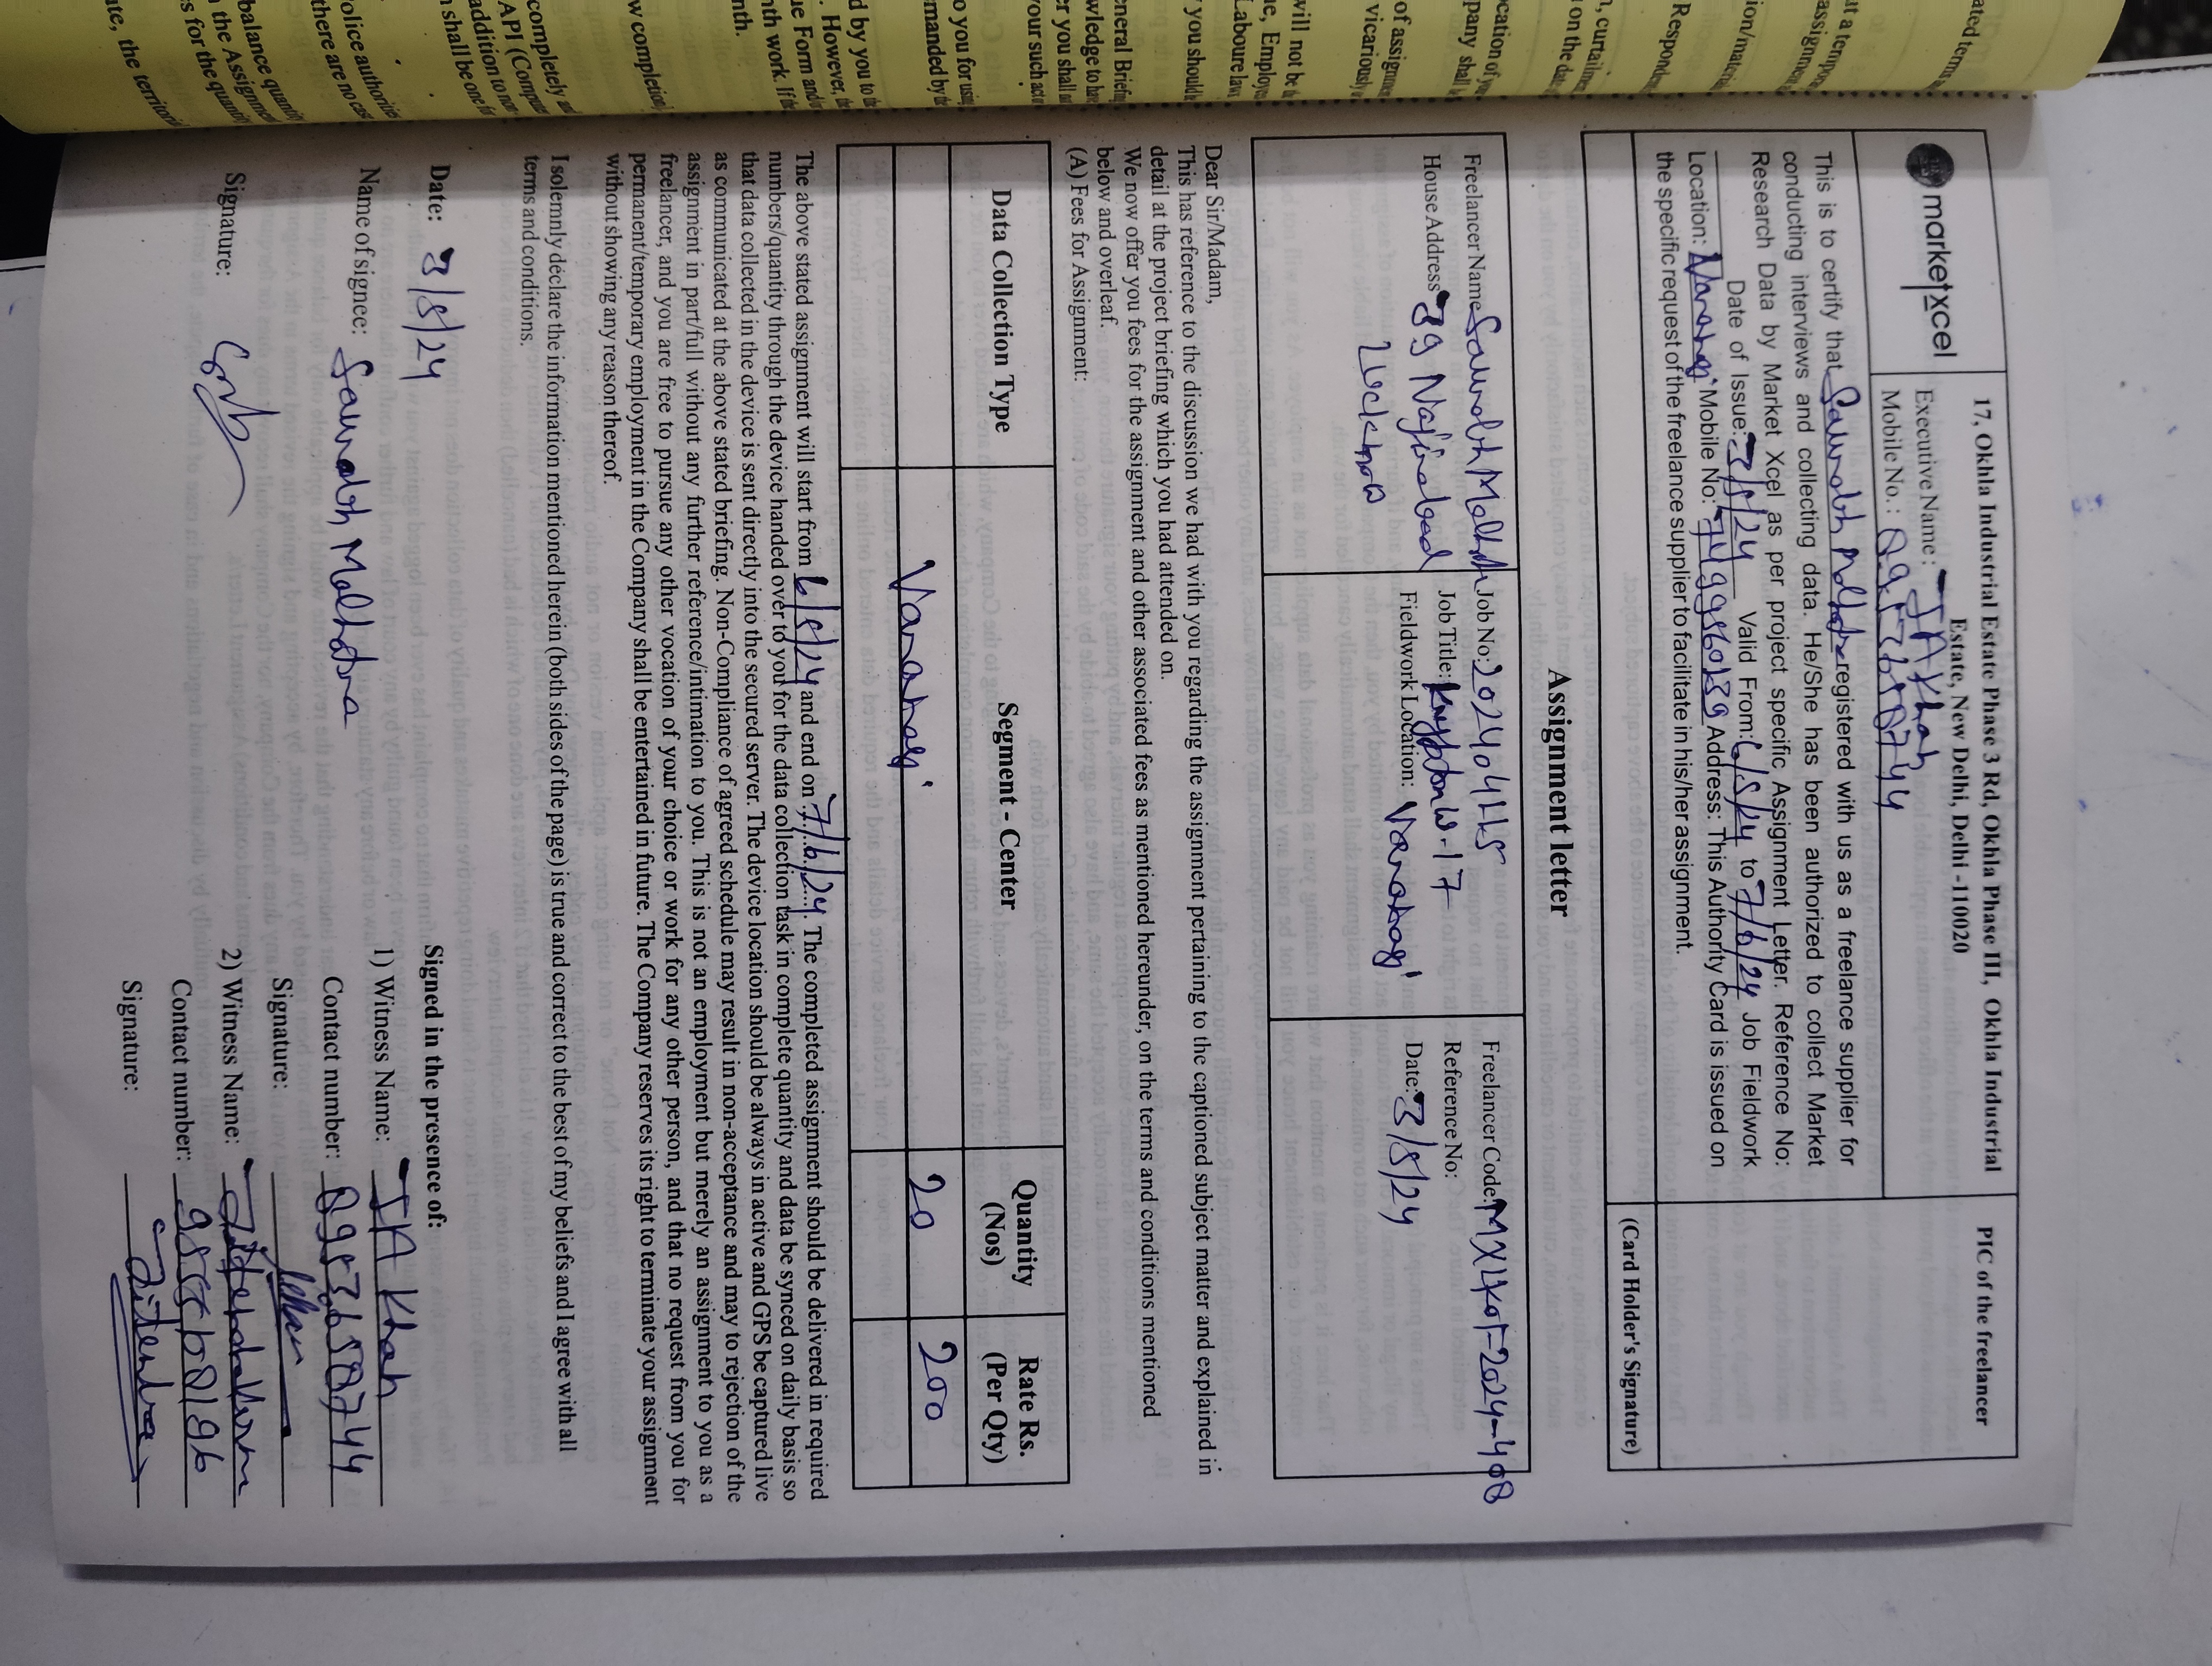 market xcel
17, Okhla Industrial Estate Phase 3 Rd, Okhla Phase III, Okhla Industrial
Estate, New Delhi, Delhi -110020
Executive Name: I A Khan
Mobile No.: 8957658744
PIC of the freelancer
This is to certify that Saurabh Malhotra registered with us as a freelance supplier for
conducting interviews and collecting data. He/She has been authorized to collect Market
Research Data by Market Xcel as per project specific Assignment Letter. Reference No:
Date of Issue: 3/5/24 Valid From: 6/5/24 to 7/6/24 Job Fieldwork
Location: Varanasi Mobile No: Address: This Authority Card is issued on
the specific request of the freelance supplier to facilitate in his/her assignment.
(Card Holder's Signature)
Assignment letter
Freelancer Name: Saurabh Malhotra
House Address: 39 Najirabad
Lucknow
Job No: 20240415
Job Title: Krypton W-17
Fieldwork Location: Varanasi
Freelancer Code: MXLKOI-2024-408
Reference No:
Date: 3/5/24
Dear Sir/Madam,
This has reference to the discussion we had with you regarding the assignment pertaining to the captioned subject matter and explained in
detail at the project briefing which you had attended on.
We now offer you fees for the assignment and other associated fees as mentioned hereunder, on the terms and conditions mentioned
below and overleaf.
(A) Fees for Assignment:
Data Collection Type
Segment - Center
Quantity
(Nos)
Rate Rs.
(Per Qty)
Varanasi
20
200
The above stated assignment will start from 6/5/24 and end on 7/6/24. The completed assignment should be delivered in required
numbers/quantity through the device handed over to you for the data collection task in complete quantity and data be synced on daily basis so
that data collected in the device is sent directly into the secured server. The device location should be always in active and GPS be captured live
as communicated at the above stated briefing. Non-Compliance of agreed schedule may result in non-acceptance and may to rejection of the
assignment in part/full without any further reference/intimation to you. This is not an employment but merely an assignment to you as a
freelancer, and you are free to pursue any other vocation of your choice or work for any other person, and that no request from you for
permanent/temporary employment in the Company shall be entertained in future. The Company reserves its right to terminate your assignment
without showing any reason thereof.
I solemnly declare the information mentioned herein (both sides of the page) is true and correct to the best of my beliefs and I agree with all
terms and conditions.
Date: 3/5/24
Name of signee: Saurabh Malhotra
Signature:
Signed in the presence of:
1) Witness Name: I A Khan
Contact number:
Signature:
2) Witness Name:
Contact number:
Signature: Jitendra